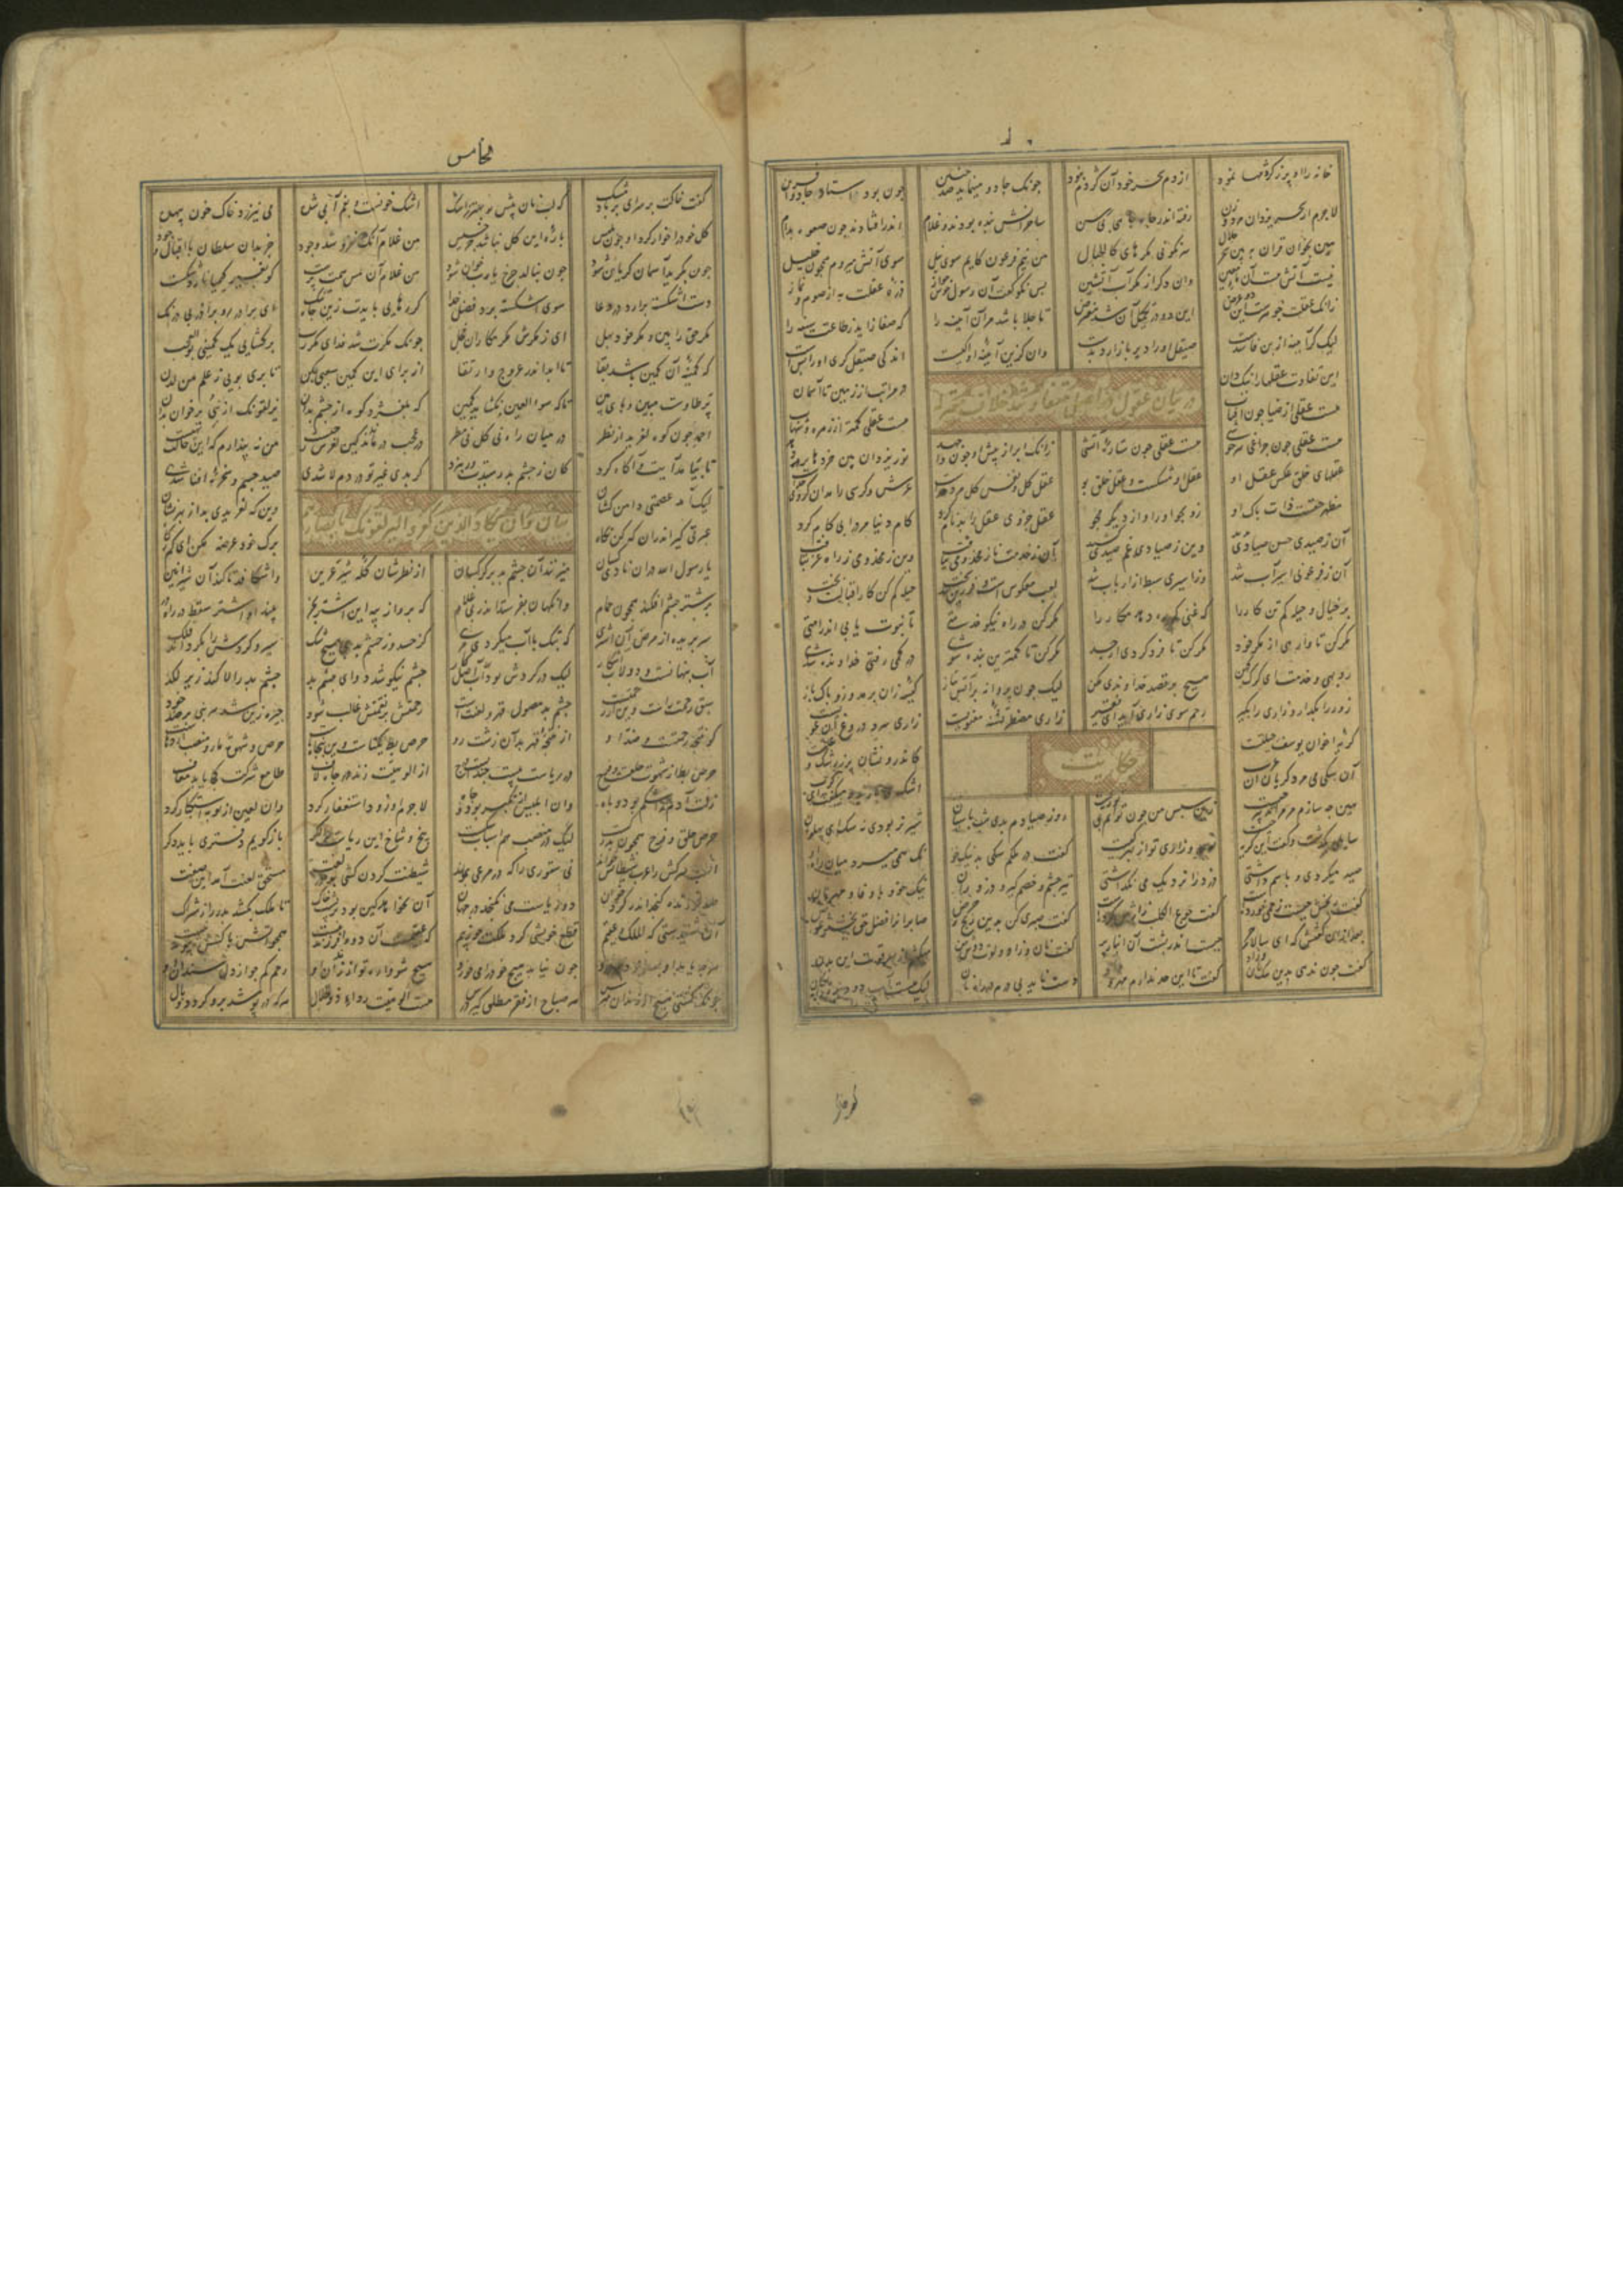 خانه را او پر ز کژدمها نمود از دم سحر خود آن کژدم نبود چونک جادو می‌نماید صد چنین چون بود دستان جادو آفرین
لاجرم از سحر یزدان مرد و زن رفته اندر چاه جاهی بی رسن ساحرانش بنده بودند و غلام اندر افتادند چون صعوه بدام
هین بخوان قران ببین سحر حلال سرنکونی مکرهای کالجبال من نیم فرعون کایم سوی نیل سوی آتش می‌روم همچون خلیل
نیست آتش هست آن ماء معین وان دکر از مکر آب آتشین بس نکو کفت آن رسول خوش جواز ذره عقلت به از صوم و نماز
زانک عقلت جوهرست این دو عرض این دو در تکمیل آن شد مفترض تا جلا باشد مر آن آینه را که صفا زاید ز طاعت سینه را
لیک کر آینه از بن فاسدست صیقل او را دیر باز آرد بدست وان کزین آینه او اکیست اندکی صیقل کری او را بس است
در بیان عقول در اصل متفاوتند خلاف معتزله
این تفاوت عقلها را نیک دان در مراتب از زمین تا آسمان
هست عقلی از ضیا چون آفتاب هست عقلی کمتر از زهره و شهاب
هست عقلی چون چراغی سرخوشی هست عقلی چون ستاره آتشی زانک ابر از پیش او چون واجهد نور یزدان بین خردها بردهد
عقلهای خلق عکس عقل او عقل او مشکست و عقل خلق بو عقل کل و نفس کل مرد خداست عرش و کرسی را مدان کز وی جداست
مظهر حقست ذات باک او زو بجو او را و از دیگر مجو عقل جزوی عقل را بدنام کرد کام دنیا مرد را بی کام کرد
آن ز صیدی حسن صیادی بدید وین ز صیادی غم صیدی کشید آن ز خدمت ناز مخدومی بیافت وین ز مخدومی ز راه عز بتافت
آن ز فرعونی اسیر آب شد وز اسیری سبط از ارباب شد لعب معکوس است و فرزین بند سخت حیله کم کن کار اقبالست و بخت
بر خیال و حیله کم تن کار را که غنی ره کم دهد مکار را مکر کن در راه نیکو خدمتی تا نبوت یابی اندر امتی
مکر کن تا وارهی از مکر خود مکر کن تا فرد کردی از جسد مکر کن تا کمترین بنده شوی در کمی رفتی خداونده شوی
روبهی و خدمت ای کرک کهن هیچ بر قصد خداوندی مکن لیک چون پروانه در آتش بتاز کیسه زان بر مدوز و باک باز
زور را بکذار و زاری را بکیر رحم سوی زاری آید ای فقیر زاری مضطر تشنه معنویست زاری سرد دروغ آن غویست
کریه اخوان یوسف حیلتست کاندرونشان پر ز رشک و علتست
حکایت
آن سکی می‌مرد و کریان آن عرب اشک می‌بارید و می‌کفت ای کرب
هین چه سازم مر مرا تدبیر چیست زین سپس من چون توانم بی تو زیست
سایلی بکذشت و کفت این کریه چیست نوحه و زاری تو از بهر کیست کفت در ملکم سکی بد نیک خو نک همی‌میرد میان راه او
روز صیادم بدی شب پاسبان شیر نر بودی نه سک ای پهلوان
صید میکردی و پاسم داشتی دزد را نزدیک من نکذاشتی تیز چشم و خصم کیر و دزد ران نیک خو و با وفا و مهربان
کفت رنجش چیست زخمی خوردست کفت جوع الکلب زارش کردست کفت صبری کن برین رنج و حرض صابران را فضل حق بخشد عوض
بعد از آن کفتش که ای سالار حر چیست اندر پشت این انبان پر کفت نان و زاد و لوت دوش من می‌کشم از بهر قوت این بدن
کفت چون ندهی بدین سک نان و زاد کفت تا این حد ندارم مهر و داد دست ناید بی درم در راه نان لیک هست آب دو دیده رایکان
خامس
کفت خاکت بر سر ای پر باد مشک که لب نان پیش تو بهتر ز اشک اشک خونست و بغم آبی شده می نیرزد خاک خون بیهده
کل خود را خوار کرد او چون بلیس پاره این کل نباشد جز خسیس من غلام آنک نفروشد وجود جز بدان سلطان با افضال و جود
چون بکرید آسمان کریان شود چون بنالد چرخ یا رب خوان شود من غلام آن مس همت پرست کو بغیر کیمیا نارد شکست
دست اشکسته برآور در دعا سوی اشکسته پرد فضل خدا کر رهایی بایدت زین چاه تنک ای برادر رو بر آذر بی درنک
مکر حق را بین و مکر خود بهل ای ز مکرش مکر مکاران خجل چونک مکرت شد فنای مکر رب برکشایی یک کمینی بوالعجب
که کمینه آن کمین باشد بقا تا ابد اندر عروج و ارتقا از برای این کمین سعیی بکن تا بری بویی ز علم من لدن
پر طاوست مبین و پای بین تا که سوء العین نکشاید کمین که بلغزد کوه از چشم بدان یزلقونک از نبی برخوان بدان
احمد چون کوه لغزید از نظر در میان راه بی کل بی مطر در عجب درماند کین لغزش ز چیست من نپندارم که این حالت تهیست
تا بیامد آیت و آکاه کرد کان ز چشم بد رسیدت وز نبرد کر بدی غیر تو در دم لا شدی صید چشم و سخره افنا شدی
لیک آمد عصمتی دامن کشان وین که لغزیدی بد از بهر نشان
بیان وان یکاد الذین کفروا لیزلقونک بابصارهم
عبرتی کیر اندر آن که کن نکاه برک خود عرضه مکن ای کم ز کاه
یا رسول الله در آن نادی کسان می‌زنند از چشم بد بر کرکسان از نظرشان کله شیر عرین واشکافد تا کند آن شیر انین
بر شتر چشم افکند همچون حمام وانکهان بفرستد اندر پی غلام که برو از پیه این اشتر بخر بیند اشتر را سقط در راه در
سر بریده از مرض آن اشتری کو بتک با اسب میکردی مری کز حسد وز چشم بد بی هیچ شک سیر و کردش را بکرداند فلک
آب پنهانست و دولاب آشکار لیک در کردش بود آب اصل کار چشم نیکو شد دوای چشم بد چشم بد را لا کند زیر لکد
سبق رحمت راست وین از رحمتست چشم بد محصول قهر و لعنتست رحمتش بر نقمتش غالب شود چیره زین شد هر نبی بر ضد خود
کو نتیجه رحمتست و ضد او از نتیجه قهر بد آن زشت رو حرص بط یکتاست وین پنجاه تاست حرص و شهوت مار و منصب اژدهاست
حرص بط از شهوت حلقست و فرج در ریاست بیست چندانست درج از الوهیت زند در جاه لاف طامع شرکت کجا باشد معاف
زلت آدم ز اشکم بود و باه وان ابلیس از تکبر بود و جاه لاجرم او زود استغفار کرد وان لعین از توبه استکبار کرد
حرص حلق و فرج هم خود بدرکیست لیک منصب نیست آن اشکستکیست بیخ و شاخ این ریاست را اکر باز کویم دفتری باید دکر
اسب سرکش را عرب شیطانش خواند نی ستوری را که در مرعی بماند شیطنت کردن کشی بد در لغت مستحق لعنت آمد این صفت
صد خورنده کنجد اندر کرد خوان دو ریاست می نکنجد در جهان آن نخواهد کین بود بر پشت خاک تا ملک بکشد پدر را ز اشتراک
آن شنیدستی که الملک عقیم قطع خویشی کرد ملکت جو ز بیم که عقیمست و ورا فرزند نیست همچو آتش با کسش پیوند نیست
هرچه یابد او بسوزد بردرد چون نیابد هیچ خود را می‌خورد هیچ شو واره تو از دندان او رحم کم جو از دل سندان او
چونک کشتی هیچ از سندان مترس هر صباح از فقر مطلق کیر درس هست الوهیت ردای ذوالجلال هر که در پوشد برو کردد وبال